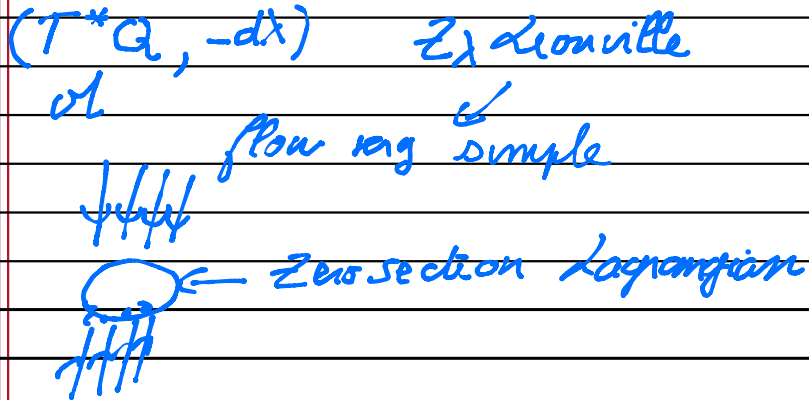 (T*Q, -dλ) Z_λ Liouville
flow simple
Zero section Lagrangian